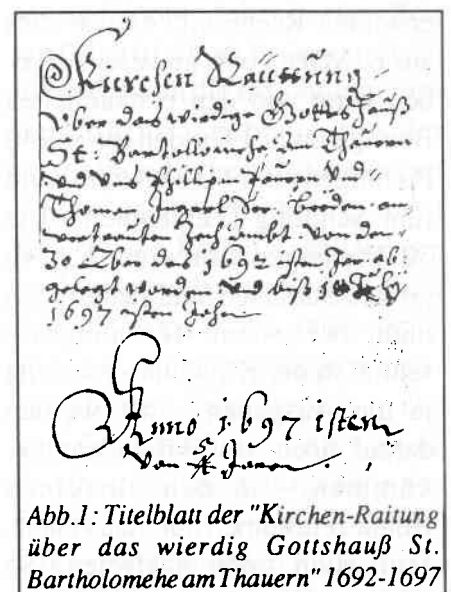 Kirchen Raittung
Über das wierdige Gottshauß
St: Bartollomehe zu Thauern
und uns Phillipp und
Thoman der beeden an
vertrauten Zech und den
30 des 1692 isten Jar ab
gelegt worden und biß July
1697 isten Jahr
Anno 1697 isten
Von 5/4 Jaren.
Abb.1: Titelblatt der "Kirchen-Raitung
über das wierdig Gottshauß St.
Bartholomehe am Thauern" 1692-1697